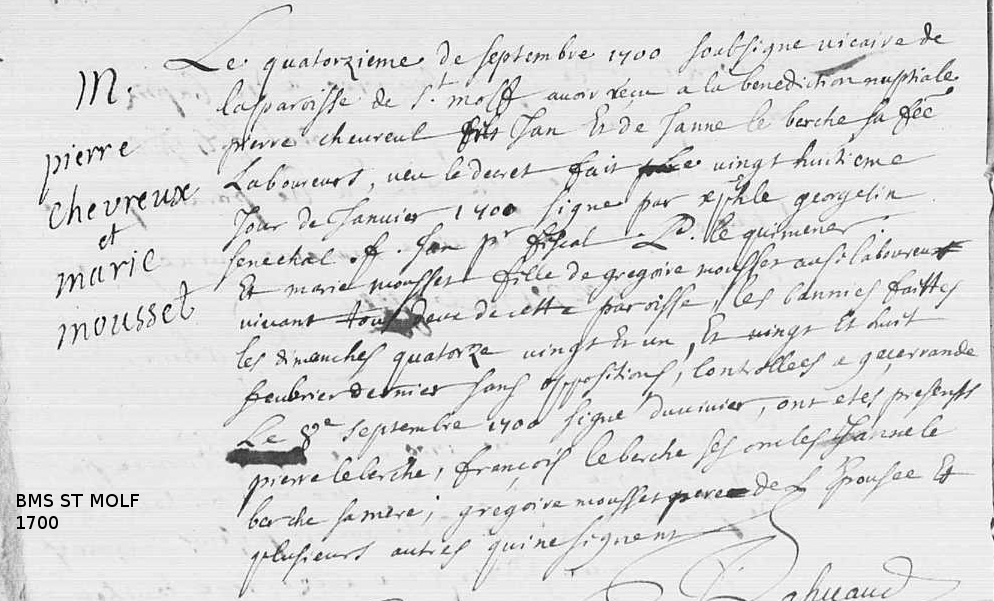 M.
pierre
chevreux
et
marie
mousset
Le quatorzieme de septembre 1700 soubsigne vicaire de
la paroisse de St molff avoir recu a la benediction nuptiale
pierre cheureul fils Jan Et de Janne le berche sa fee
Laboureurs, veu le decret fait vingt huitieme
Jour de Janvier 1700 signe par georgelin
senechal pr fiscal le quimener
Et marie mousset fille de gregoire mousset aussi laboureur
vivant tous deux de cette paroisse, les bannies faittes
les dimanches quatorze vingt Et un, Et vingt Et huit
feubrier dernier sans oppositions, Controllees a guerrande
Le 8e septembre 1700 signe duvivier, ont etes presents
pierre le berche, francois le berche ses oncles Janne le
berche sa mere, gregoire mousset pere de L Epousee Et
plusieurs autres qui ne signent
BMS ST MOLF
1700